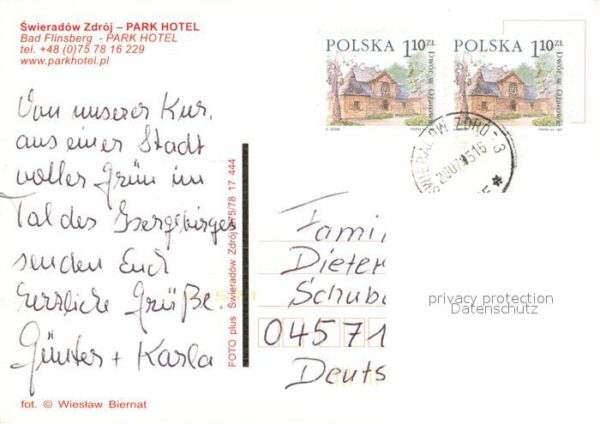 Świeradów Zdrój – PARK HOTEL
Bad Flinsberg - PARK HOTEL
tel. +48 (0)75 78 16 229
www.parkhotel.pl
POLSKA 1,10 ZŁ
POLSKA 1,10 ZŁ
ŚWIERADÓW ZDRÓJ 3
Von unserer Kur,
aus einer Stadt
voller Grün im
Tal des Isergebirges
senden Euch
herzliche Grüße.
Günter + Karla
FOTO plus Świeradów Zdrój 075/78 17 444
Famil
Dieter
Schube
04571
Deuts
privacy protection
Datenschutz
fot. © Wiesław Biernat